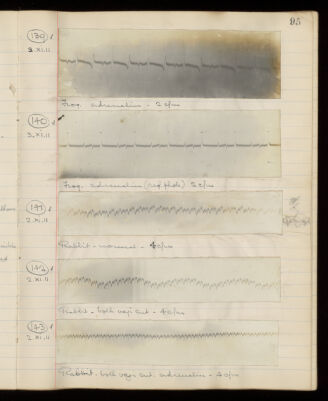 95
130
3.XI.11
Frog. adrenalin - 2 c/ms
140
3.XI.11
Frog. adrenalin (neg. photo) 2 c/ms
141
2.XI.11
Rabbit - normal - 40/ms
142
2.XI.11
Rabbit - both vagi cut - 40/ms
143
2.XI.11
Rabbit. both vagi cut. adrenalin - 40/ms